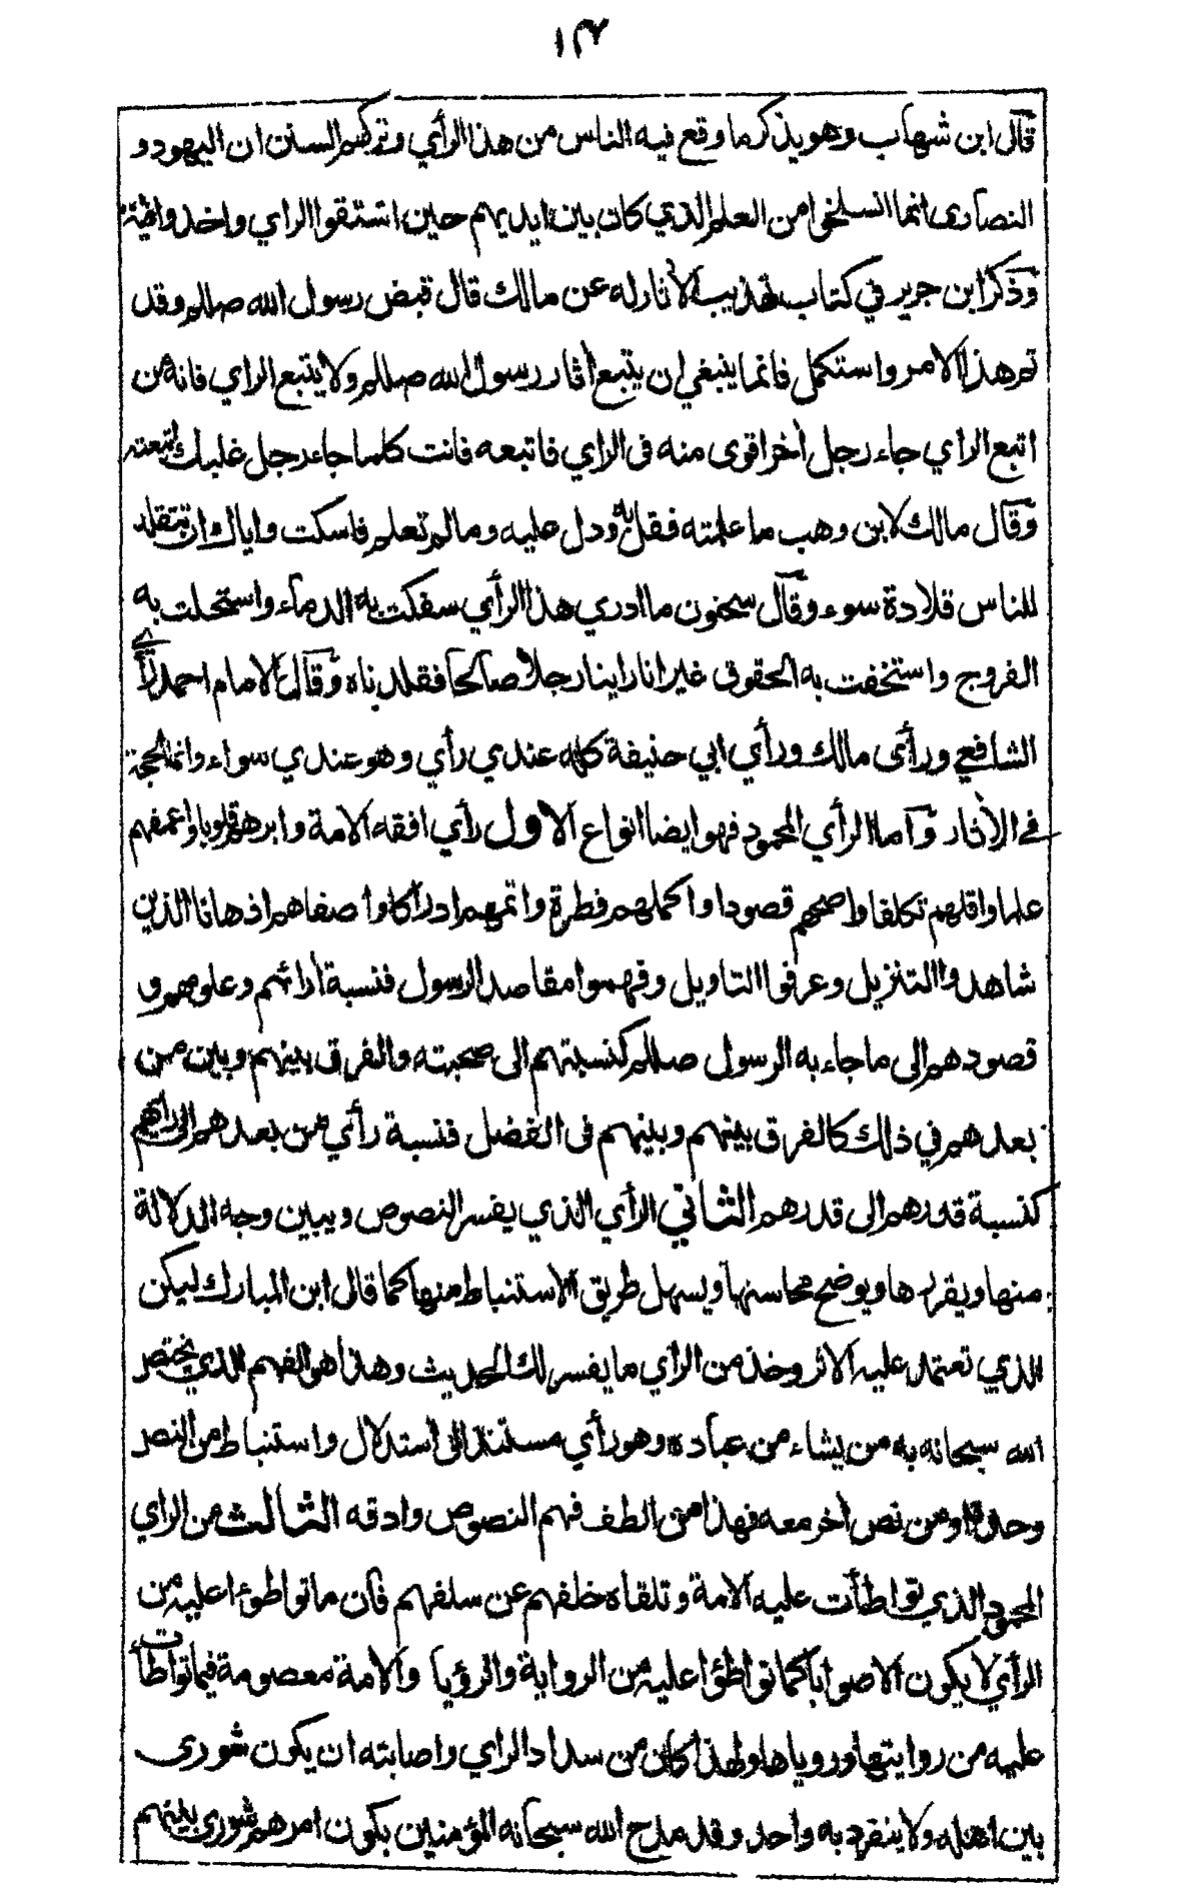 ١٣٧
قال ابن شهاب وهو يذكر ما وقع فيه الناس من هذا الرأي وتركهم السنن ان اليهود و
النصارى انما انسلخوا من العلم الذي كان بين ايديهم حين اتسقوا الراي واخذوا فيه
وذكر ابن جرير في كتاب تهذيب الأثار له عن مالك قال قبض رسول الله صللم وقد
تم هذا الامر واستكمل فانما ينبغي ان يتبع أثار رسول الله صللم ولا يتبع الراي فانه من
اتبع الراي جاء رجل أخر اقوى منه فى الراي فاتبعه فانت كلما جاء رجل غلبك اتبعته
وقال مالك لابن وهب ما علمته فقل به ودل عليه وما لم تعلم فاسكت واياك ان تتقلد
للناس قلادة سوء وقال سحنون ما ادري هذا الرأي سفكت به الدماء واستحلت به
الفروج واستخفت به الحقوق غير انا راينا رجلا صالحا فقلدناه وقال الامام احمد رأي
الشافعي ورأى مالك ورأي ابي حنيفة كله عندي رأي وهو عندي سواء وانما الحجة
في الأثار وآما الرأي المحمود فهو ايضا انواع الاول رأي افقه الامة وابرهم قلوبا واعمقهم
علما واقلهم تكلفا واصحهم قصودا واكملهم فطرة واتمهم ادراكا وأصفاهم اذهانا الذين
شاهدوا التنزيل وعرفوا التاويل وفهموا مقاصد الرسول فنسبة أرائهم وعلومهم و
قصودهم الى ما جاء به الرسول صللم كنسبتهم الى صحبته والفرق بينهم وبين من
بعدهم في ذلك كالفرق بينهم وبينهم فى الفضل فنسبة رأي من بعدهم الى رايهم
كنسبة قدرهم الى قدرهم الثاني الرأي الذي يفسر النصوص ويبين وجه الدلالة
منها ويقررها ويوضح محاسنها ويسهل طريق الاستنباط منها كما قال ابن المبارك ليكن
الذي تعتمد عليه الاثر وخذ من الرأي ما يفسر لك الحديث وهذا هو الفهم الذي يختص
الله سبحانه به من يشاء من عباده وهو رأي مستند الى أستدلال واستنباط من النص
وحده او من نص أخر معه فهذا من الطف فهم النصوص وادقه الثالث من الراي
المحمود الذي تواطأت عليه الامة وتلقاه خلفهم عن سلفهم فان ما تواطوءا عليه من
الرأي لا يكون الا صوابا كما تواطؤا عليه من الرواية والرؤيا والامة معصومة فيما تواطأت
عليه من روايتها ورؤياها ولهذا كان من سداد الراي واصابته ان يكون شورى
بين اهله ولا ينفرد به واحد وقد مدح الله سبحانه المؤمنين بكون امرهم شورى بينهم